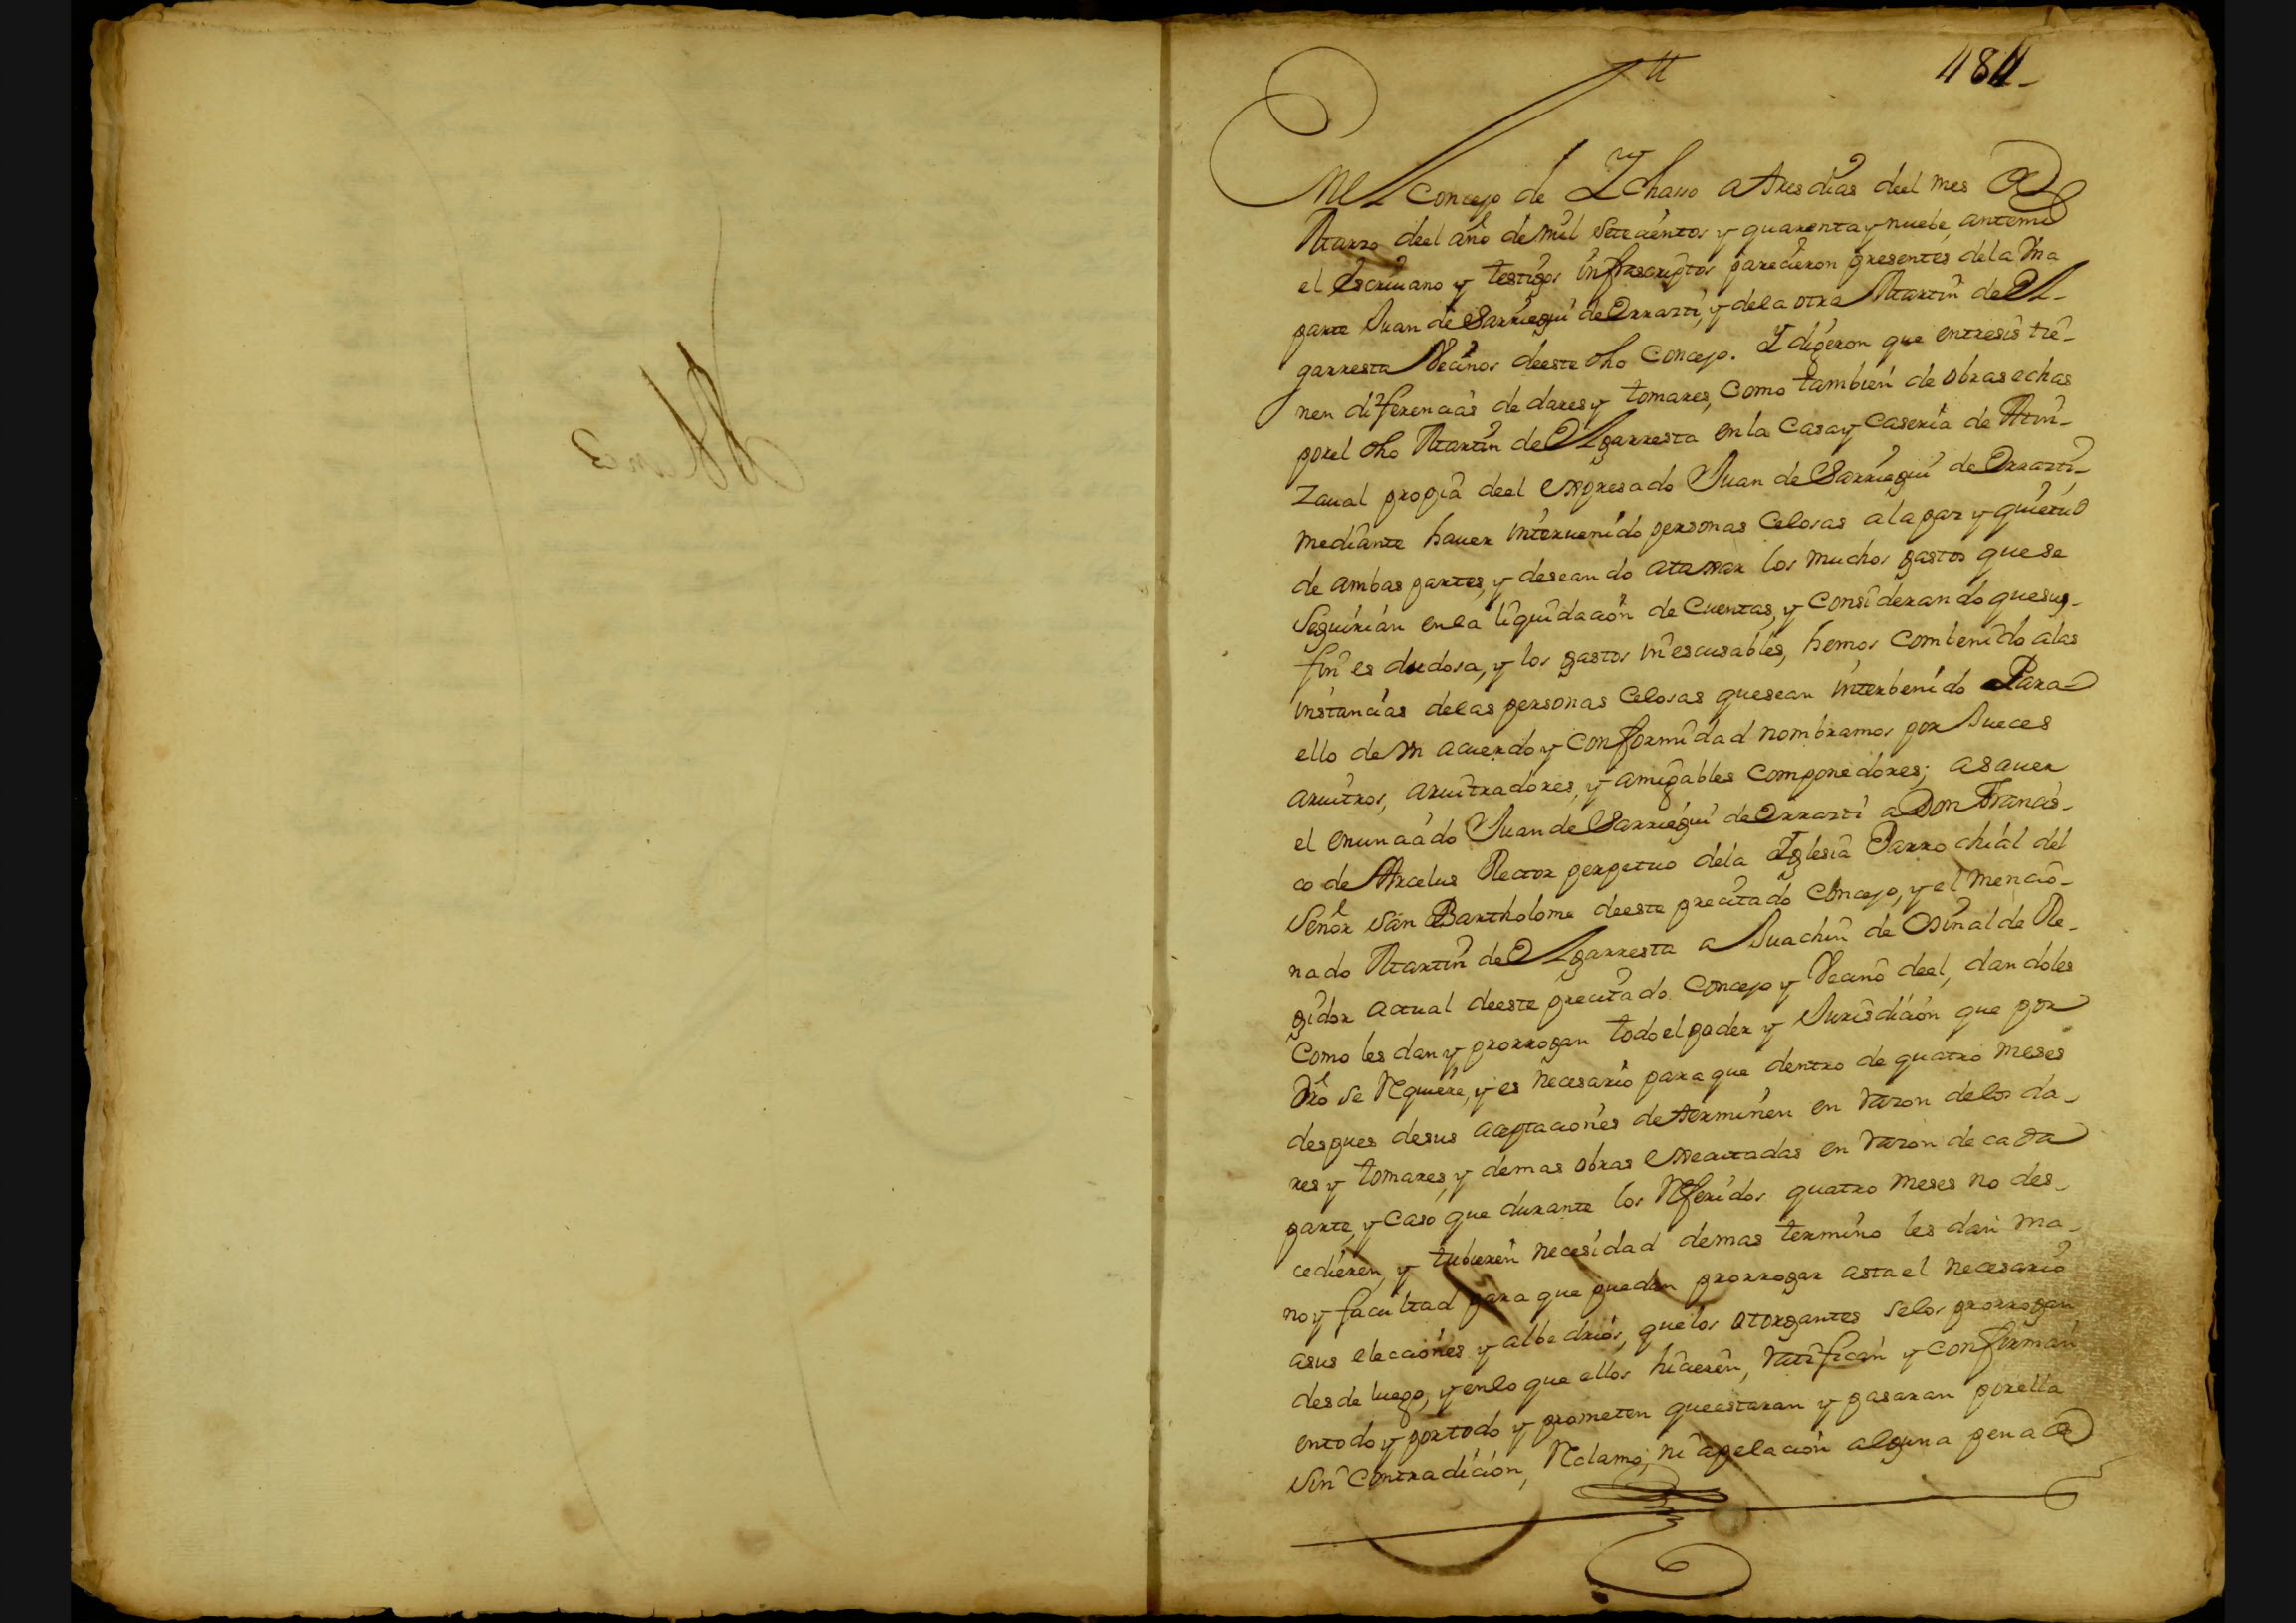 484
En el Concejo de Ichasso a tres dias deel mes de
Marzo deel año de mil setecientos y quarenta y nuebe, antemi
el escriuano y testigos infrascriptos parecieron presentes dela vna
parte Juan de Sarriegui de Orrazti, y dela otra Martin de Al-
garresta Vecinos deeste dho Concejo. Y digeron que entresis tie-
nen diferencias de dares y tomares, como tambien de obras echas
porel dho Martin de Algarresta en la Casa y Caseria de
zaual propia deel expresado Juan de Sarriegui de Orrazti,
mediante hauer interuenido personas Celosas ala paz y quietud
de ambas partes, y deseando ataxar los muchos gastos que se
seguirian enla liquidacion de Cuentas, y Considerando quesu
fin es dudosa, y los gastos inescusables, hemos combenido alas
instancias delas personas Celosas quesean interbenido Para
ello de vn acuerdo y conformidad nombramos por Jueces
aruitros, aruitradores, y amigables componedores; asauer
el enunciado Juan de Sarriegui de Orrazti a Don Francis-
co de Arcelus Rector perpetuo dela Iglesia Parrochial del
Señor San Bartholome deeste precitado Concejo, y el mencio-
nado Martin de Algarresta a Juachin de Osinalde Re-
gidor actual deeste precitado Concejo y Vecino deel, dandoles
Como les dan y prorrogan todo el poder y Jurisdicion que por
dro se requiere, y es necesario para que dentro de quatro meses
despues desus aceptaciones determinen en razon delos da-
res y tomares, y demas obras executadas en razon de cada
parte, y Caso que durante los referidos quatro meses no des-
cedieren, y tubieren necesidad demas termino les dan ma-
no y facultad para que puedan prorrogar asta el necesario
asus elecciones y albedrios, quelos otorgantes selos prorrogan
desde luego, y enlo que ellos hicieren, ratifican y confirman
entodo y portodo y prometen queestaran y pasaran porella
sin Contradicion, reclamo, ni apelacion alguna pena de